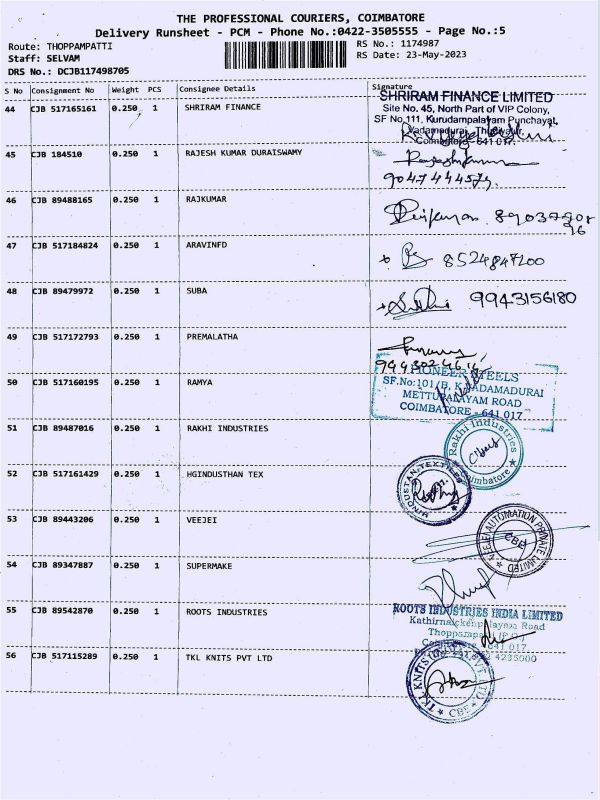 THE PROFESSIONAL COURIERS, COIMBATORE
Delivery Runsheet - PCM - Phone No.:0422-3505555 - Page No.:5
Route: THOPPAMPATTI
RS No.: 1174987
Staff: SELVAM
RS Date: 23-May-2023
DRS No.: DCJB117498705
S No Consignment No Weight PCS Consignee Details Signature
44 CJB 517165161 0.250 1 SHRIRAM FINANCE
SHRIRAM FINANCE LIMITED
Site No. 45, North Part of VIP Colony,
SF No.111, Kurudampalayam Punchayat,
Coimbatore - 641 017.
45 CJB 184510 0.250 1 RAJESH KUMAR DURAISWAMY
9047444574
46 CJB 89488165 0.250 1 RAJKUMAR
47 CJB 517184824 0.250 1 ARAVINFD
8524847200
48 CJB 89479972 0.250 1 SUBA
9943156180
49 CJB 517172793 0.250 1 PREMALATHA
50 CJB 517160195 0.250 1 RAMYA
PIONEER STEELS
SF.No:101/B, K.VADAMADURAI
METTUPALAYAM ROAD
COIMBATORE - 641 017
51 CJB 89487016 0.250 1 RAKHI INDUSTRIES
Rakhi Industries
Coimbatore
52 CJB 517161429 0.250 1 HGINDUSTHAN TEX
HINDUSTAN TEXTILES
53 CJB 89443206 0.250 1 VEEJEI
VEEJEI AUTOMATION PRIVATE LIMITED
CBE
54 CJB 89347887 0.250 1 SUPERMAKE
55 CJB 89542870 0.250 1 ROOTS INDUSTRIES
ROOTS INDUSTRIES INDIA LIMITED
56 CJB 517115289 0.250 1 TKL KNITS PVT LTD
4235000
TKL KNITS PVT. LTD
CBE